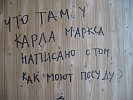 ЧТО ТАМ У
КАРЛА МАРКСА
НАПИСАНО О ТОМ
КАК МОЮТ ПОСУДУ?